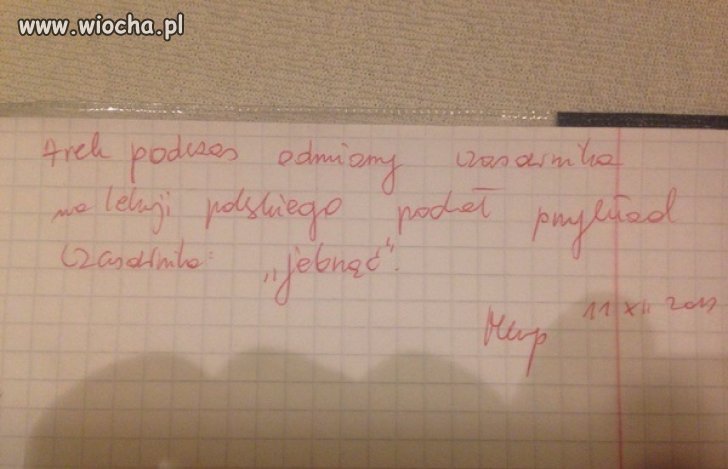 www.wiocha.pl
Arek podczas odmiany czasownika
na lekcji polskiego podał przykład
czasownika: „jebnąć".
11 XII